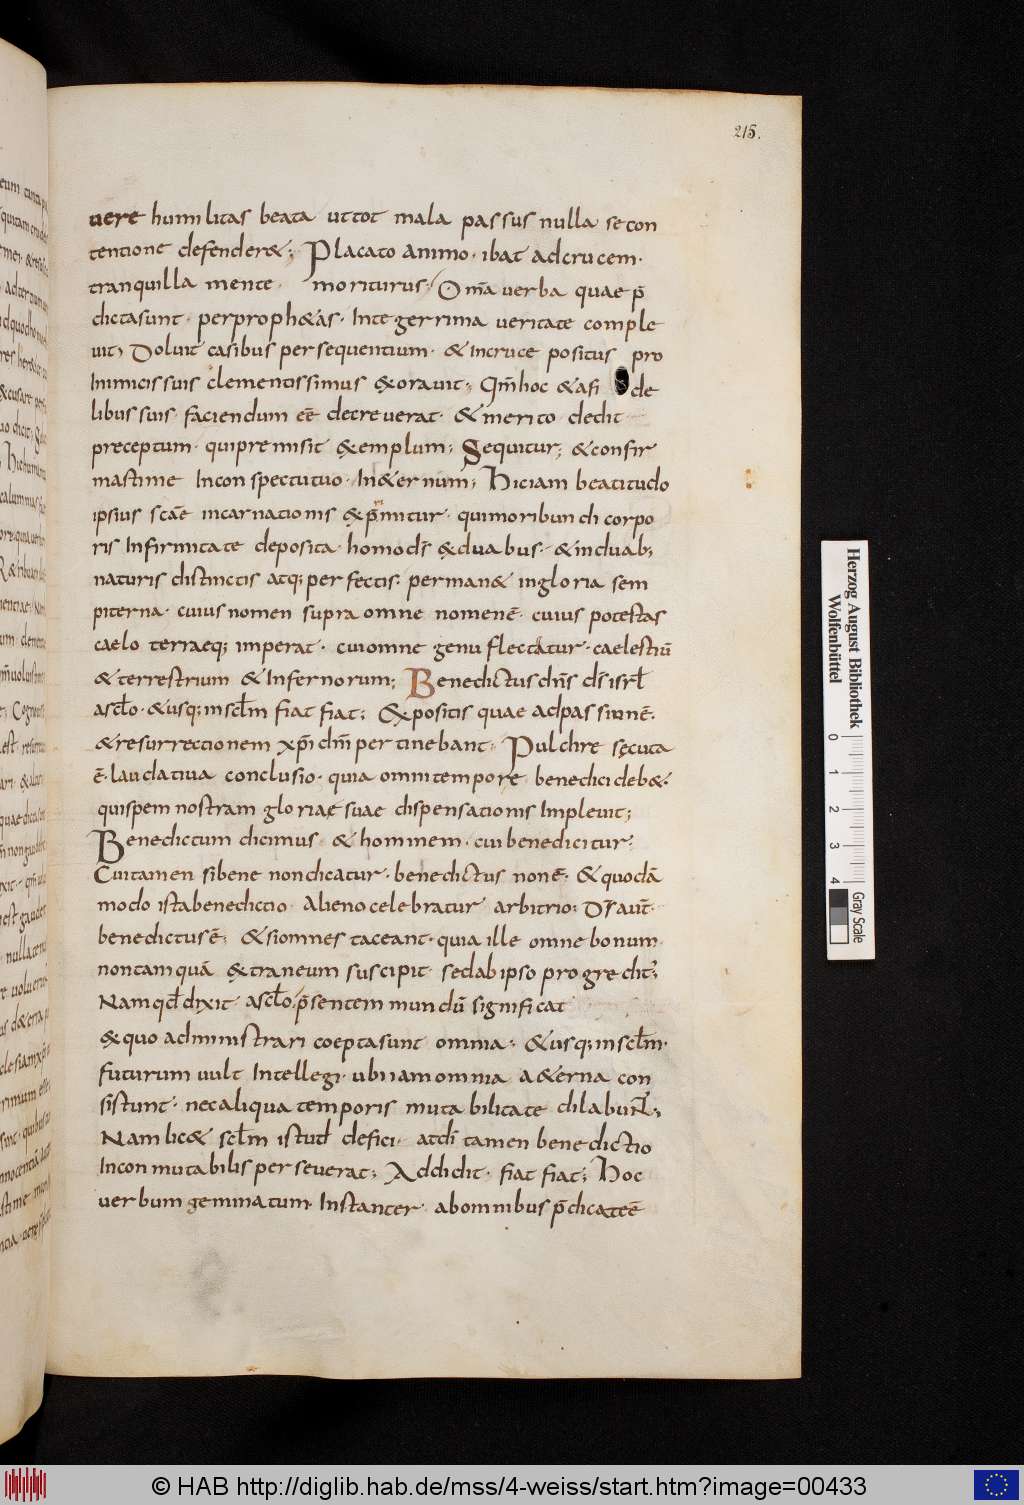 215.
uere humilitas beata ut tot mala passus nulla se con
tentione defender&; Placato animo· ibat ad crucem·
tranquilla mente· moriturus· Om̄a uerba quae p̄
dicta sunt· per proph&as· Integerrima ueritate comple
uit, Doluit casibus persequentium· & In cruce positus pro
Inimicis suis clementissimus &orauit; Qm̄ hoc & a fi de
libus suis faciendum eē decreuerat· & merito dedit
preceptum· qui premisit &emplum; Sequitur; & confir
mastime In conspectu tuo· In &ernum; Hic iam beatitudo
ipsius scāe incarnationis &p̄mitur· qui moribundi corpo
ris Infirmitate deposita· homo d̄s & duabus· & in duab;
naturis distinctis atq; perfectis· perman& in gloria sem
piterna· cuius nomen supra omne nomen ē· cuius potestas
caelo terraeq; imperat· cui omne genu flectatur· caelestiū
& terrestrium & Infernorum; Benedictus dn̄s ds̄ isrl̄
a scl̄o· & usq; in scl̄m fiat fiat; Expositis quae ad passionē·
& resurrectionem xp̄i dn̄i pertinebant· Pulchre secuta
ē· laudatiua conclusio· quia omni tempore benedici deb&·
qui spem nostram gloriae suae dispensationis Impleuit;
Benedictum dicimus & hominem· cui benedicitur·
Cui tamen si bene non dicatur· benedictus non ē· & quodā
modo ista benedictio· Alieno celebratur arbitrio; Ds̄ aut̄·
benedictus ē; & si omnes taceant· quia ille omne bonum
non tamquā &traneum suscipit· sed ab ipso progredit̄;
Nam qd̄ dixit· a scl̄o, p̄sentem mundū significat
&quo administrari coepta sunt omnia; & usq; in scl̄m·
futurum uult Intellegi· ubi iam omnia a&erna con
sistunt· nec aliqua temporis mutabilitate dilabunt̄;
Nam lic& scl̄m istud defici· at dī tamen benedictio
Inconmutabilis perseuerat; Addidit· fiat fiat; Hoc
uerbum geminatum· Instanter· ab omnibus p̄dicate ē
Herzog August Bibliothek
Wolfenbüttel
0 1 2 3 4
Gray Scale
© HAB http://diglib.hab.de/mss/4-weiss/start.htm?image=00433